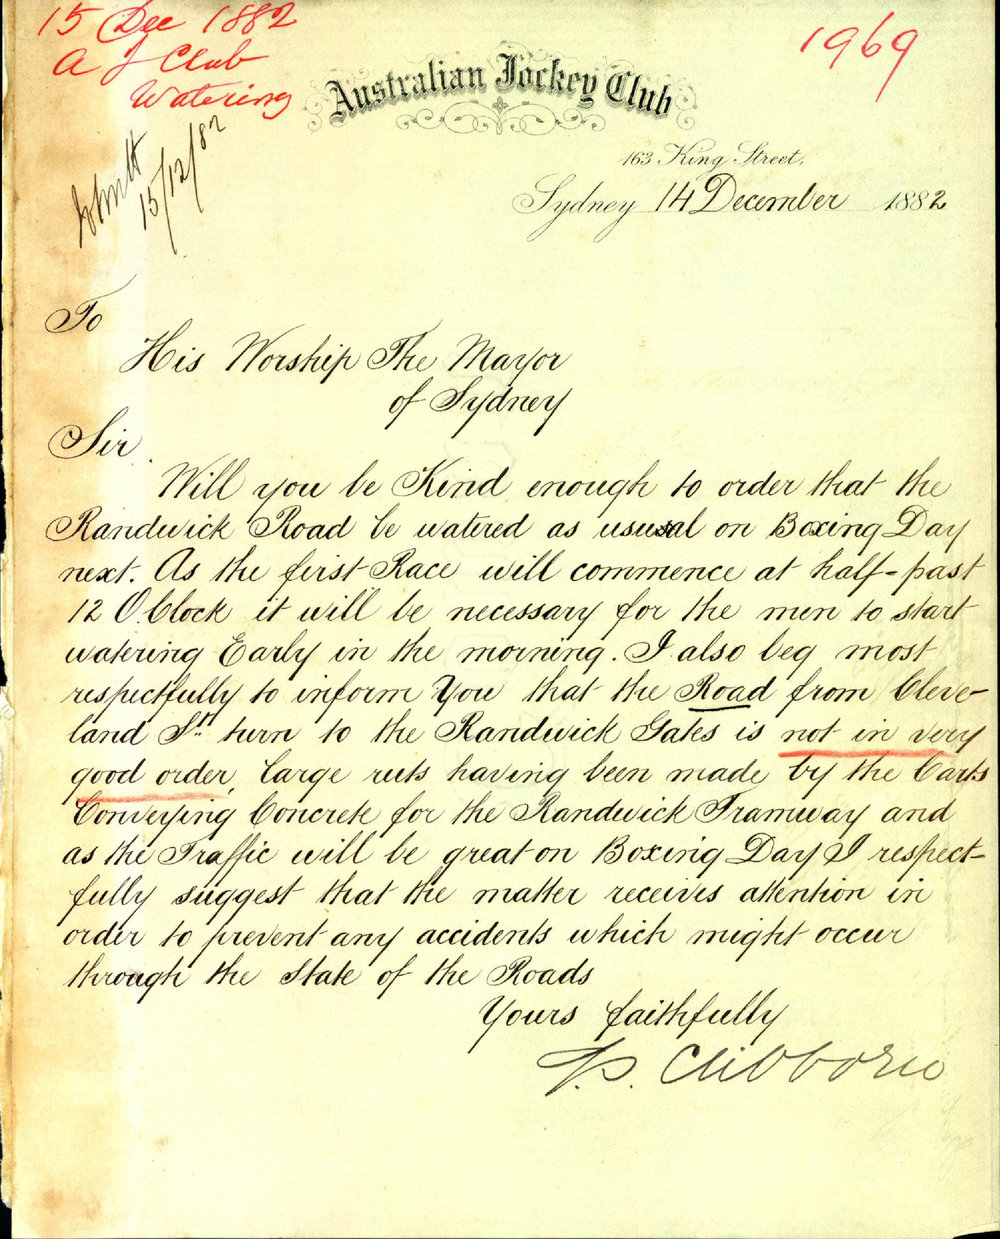 15 Dec 1882
A J Club
Watering
1969
15/12/82
Australian Jockey Club
163 King Street,
Sydney 14 December 1882
To
His Worship The Mayor
of Sydney
Sir
Will you be Kind enough to order that the
Randwick Road be watered as usual on Boxing Day
next. As the first Race will commence at half-past
12 O.Clock it will be necessary for the men to start
watering Early in the morning. I also beg most
respectfully to inform You that the Road from Cleve-
land St. turn to the Randwick Gates is not in very
good order, large ruts having been made by the Carts
Conveying Concrete for the Randwick Tramway and
as the Traffic will be great on Boxing Day I respect-
fully suggest that the matter receives attention in
order to prevent any accidents which might occur
through the State of the Roads
Yours faithfully
T.S. Clibborn